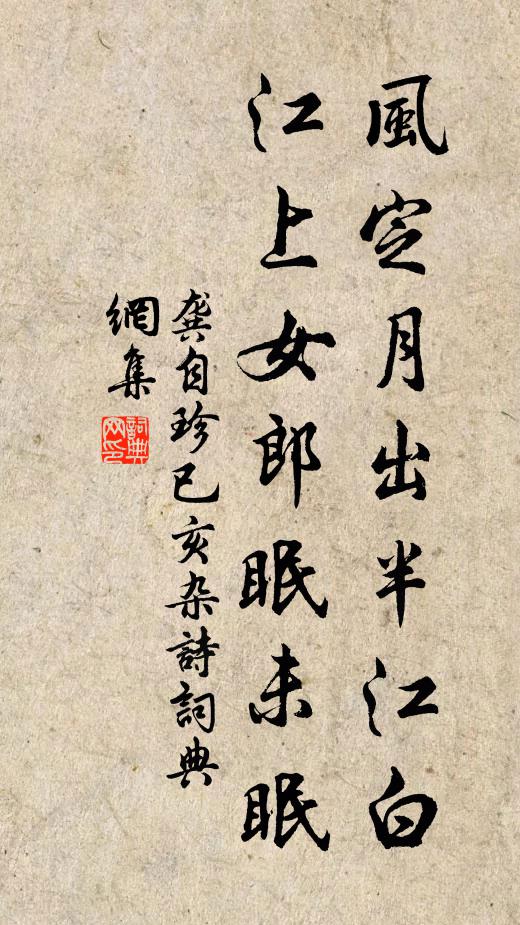 風定月出半江白
江上女郎眠未眠
龔自珍已亥杂詩詞典
網集
詞典
网印